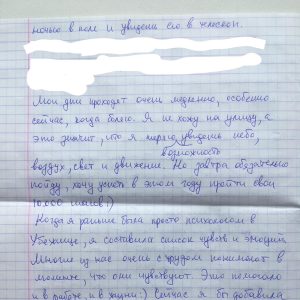 ночью в поле и увидели его в телескоп.
Мои дни проходят очень медленно, особенно
сейчас, когда болею. Я не хожу на улицу, а
это значит, что я теряю увидеть небо,
возможность
воздух, свет и движение. Но завтра обязательно
пойду, хочу успеть в этом году пройти свои
10.000 шагов!)
Когда я раньше была просто психологом в
Убежище, я составила список чувств и эмоций.
Многие из нас очень с трудом понимают в
моменте, что они чувствуют. Это помогало
и в работе, и в жизни:) Сейчас я бы добавила